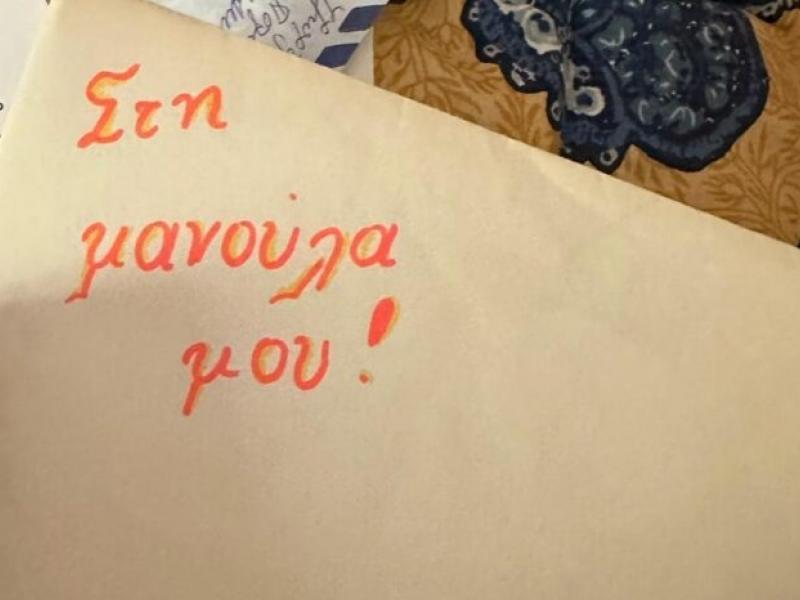 Στη
μανούλα
μου!